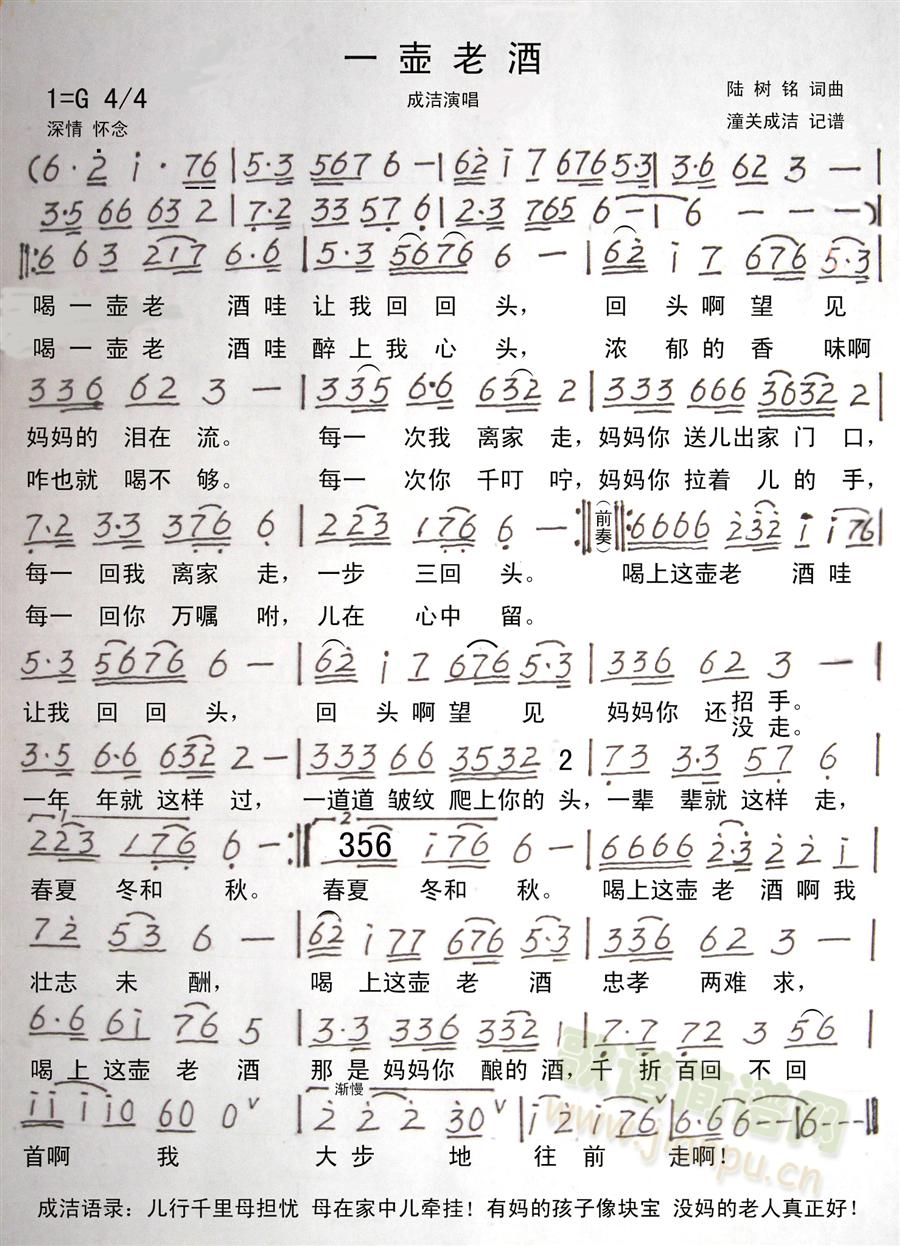 一壶老酒
1=G 4/4
成洁演唱
陆树铭 词曲
深情 怀念
潼关成洁 记谱
(6·2 i·76|5·3 5676 6—|62 i7 676 5·3|3·6 62 3 —|
3·5 66 63 2|7·2 33 57 6|2·3 765 6—|6 — — —)
‖:6 63 217 6·6|5·3 5676 6 —|62 i7 676 5·3|
喝一壶老 酒哇 让我回回头， 回头啊望见
喝一壶老 酒哇 醉上我心头， 浓郁的香味啊
336 62 3 —|335 6·6 632 2|333 666 3632 2|
妈妈的 泪在流。 每一 次我 离家 走，妈妈你 送儿出家 门 口，
咋也就 喝不够。 每一 次你 千叮 咛，妈妈你 拉着 儿的 手，
7·2 3·3 376 6|223 176 6 —:‖(前奏)‖:6666 232 i i76|
每一 回我 离家 走，一步 三回 头。 喝上这壶老 酒哇
每一 回你 万嘱 咐，儿在 心中 留。
5·3 5676 6 —|62 i7 676 5·3|336 62 3 —|
让我 回回头， 回头啊望见 妈妈你 还招手。
没走。
3·5 6·6 632 2—|333 66 3532 2|73 3·3 57 6|
一年 年就 这样 过，一道道 皱纹 爬上你的 头，一辈 辈就 这样 走，
1 2
223 176 6—:‖356 i76 6—|6666 2·3 22 i|
春夏 冬和 秋。 春夏 冬和 秋。 喝上这壶 老 酒啊我
72 53 6 —|62 i77 676 5·3|336 62 3 —|
壮志 未 酬， 喝 上这壶 老 酒 忠孝 两难 求，
6·6 6i 76 5|3·3 336 332 1|7·7 72 3 56|
喝上 这壶 老 酒 那是 妈妈你 酿的 酒，千 折 百回 不回
渐慢
ii i i0 60 0∨|2 2 2 30∨|i2 i76∨|6·6 6—|6—‖
首啊 我 大步 地 往前 走啊！
歌谱简谱网
www.jianpu.cn
成洁语录：儿行千里母担忧 母在家中儿牵挂！有妈的孩子像块宝 没妈的老人真正好！